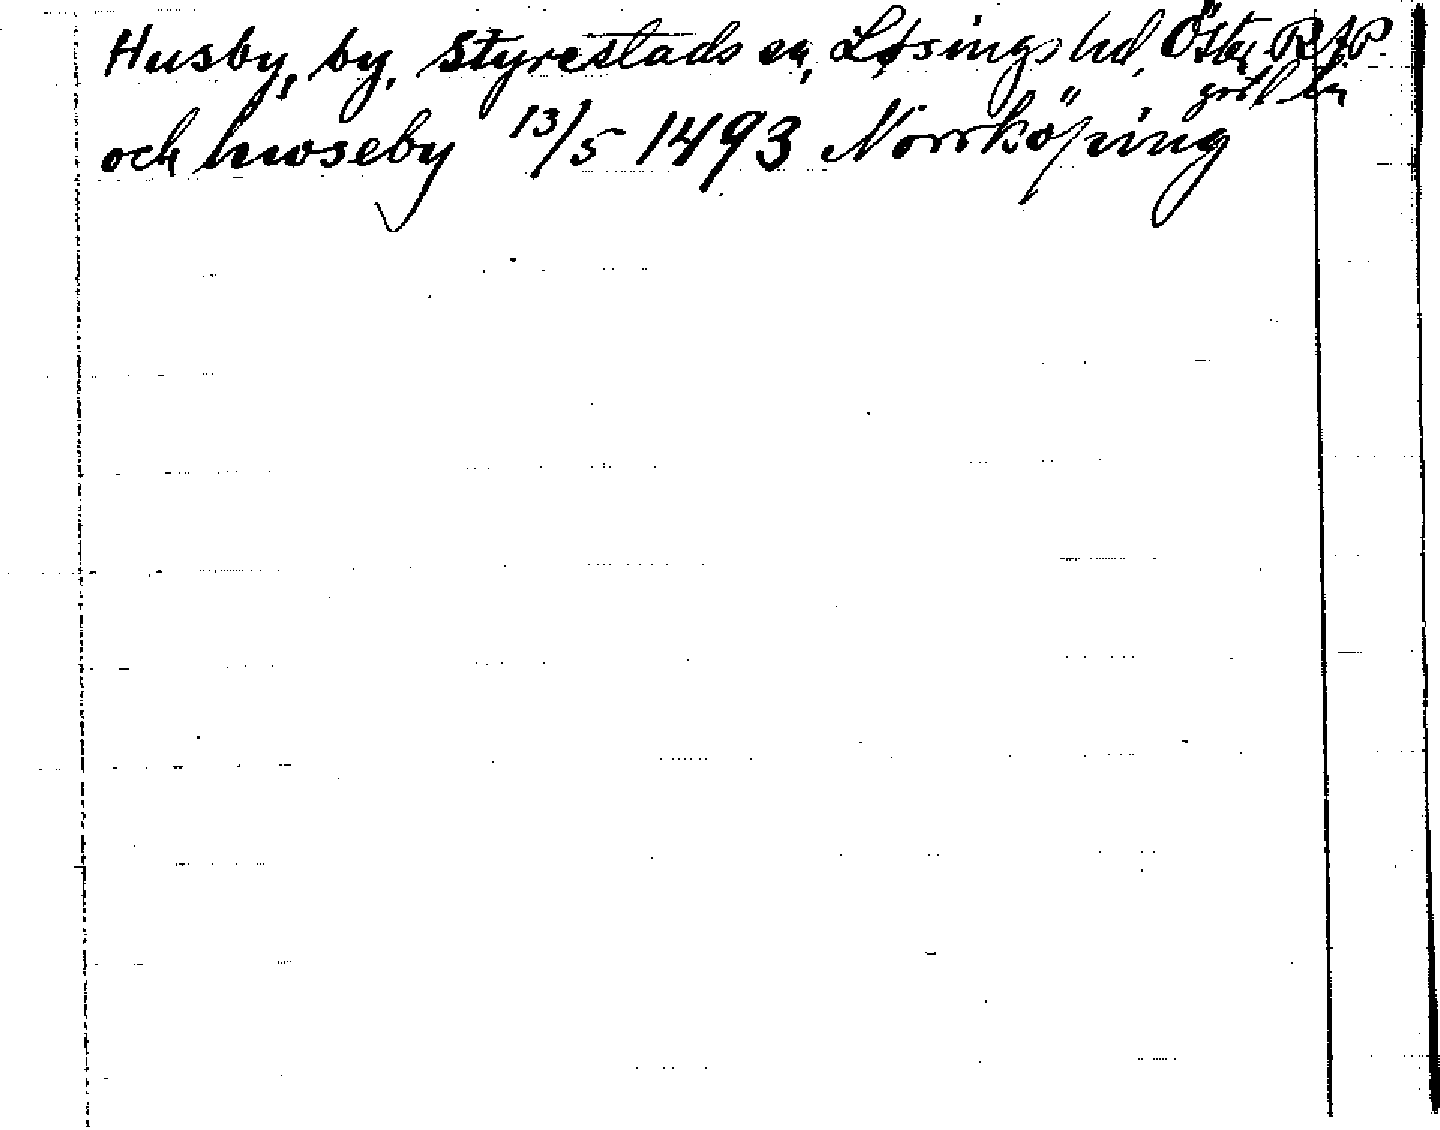 Husby, by, Styrestads sn, Lösings hd, Öster RAP
götl. län
och hwseby 13/5 1493 Norrköping